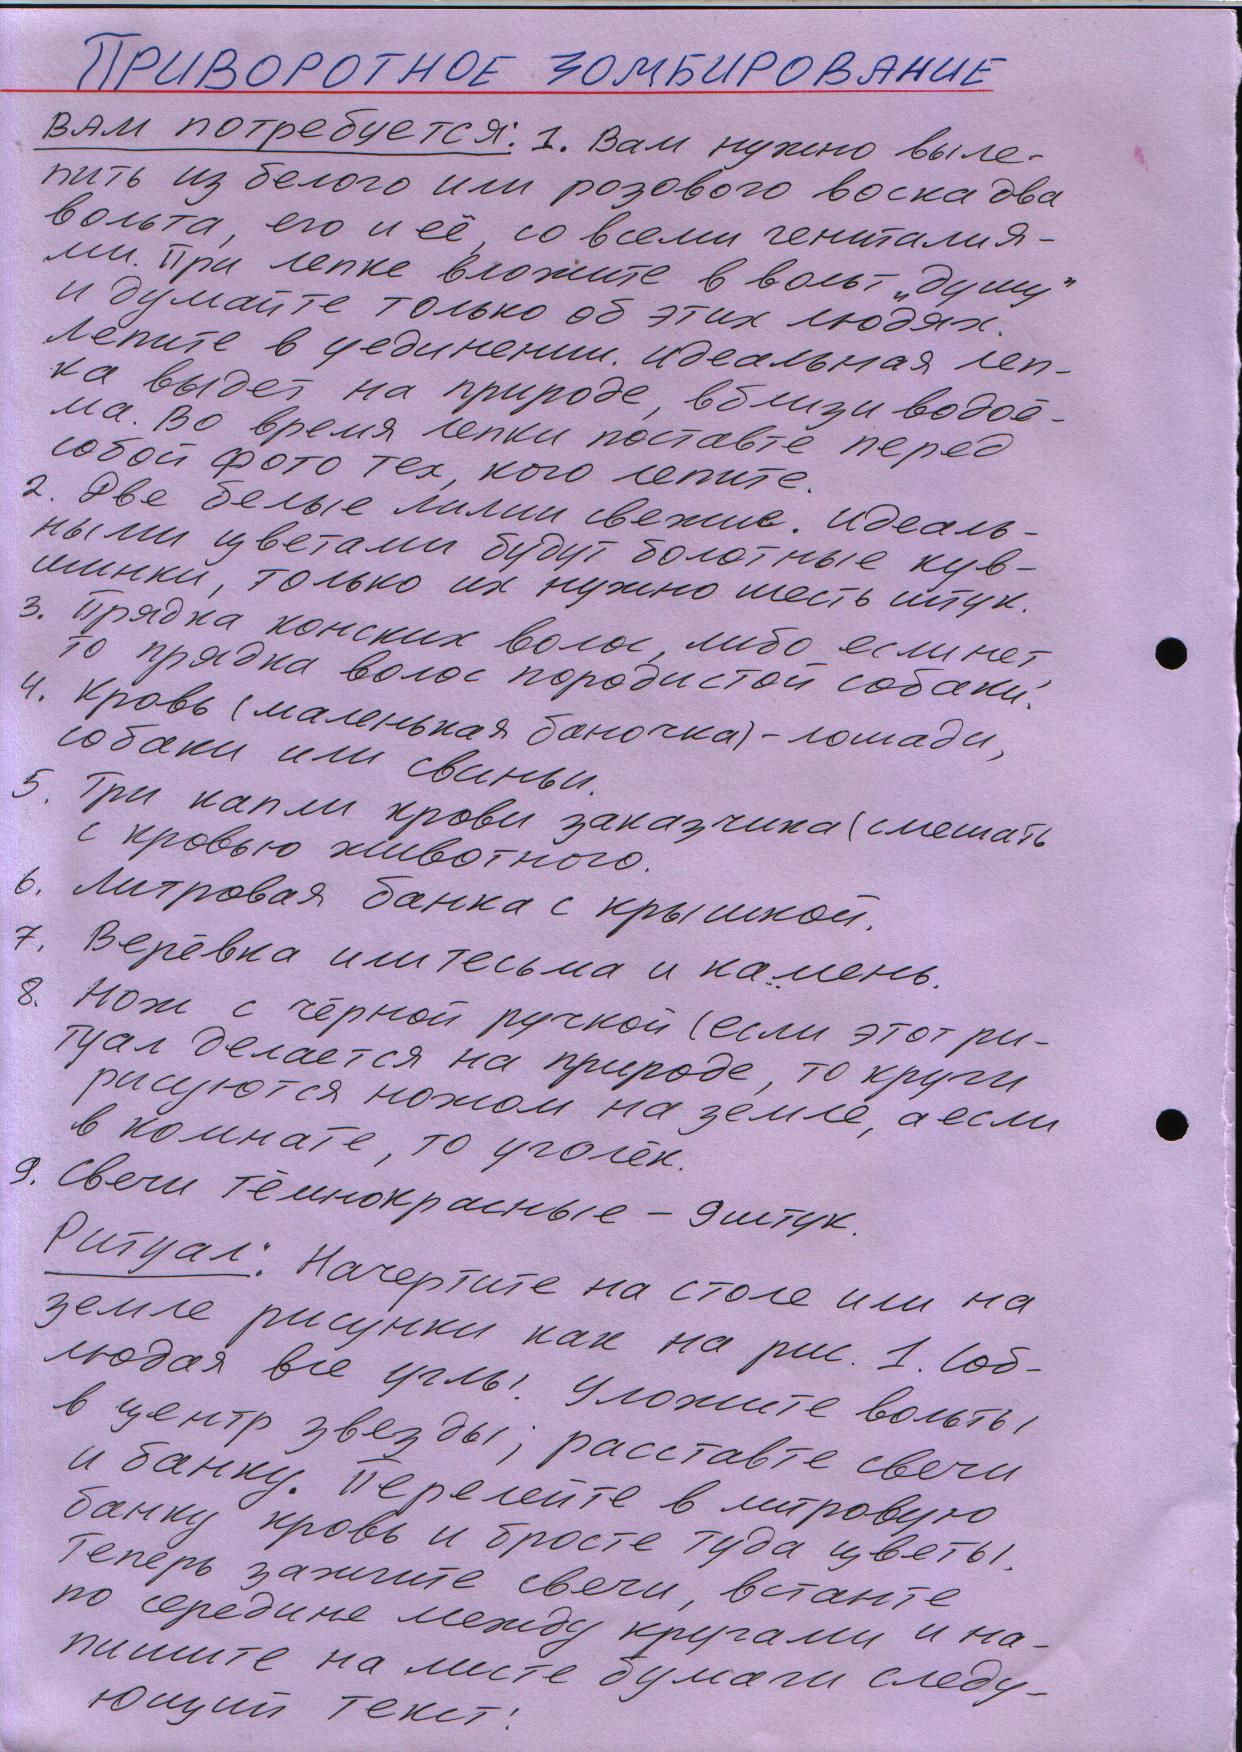 ПРИВОРОТНОЕ ЗОМБИРОВАНИЕ
ВАМ потребуется: 1. Вам нужно выле-
пить из белого или розового воска два
вольта, его и её, со всеми гениталия-
ми. При лепке вложите в вольт „душу"
и думайте только об этих людях.
Лепите в уединении. Идеальная леп-
ка выдет на природе, вблизи водоё-
ма. Во время лепки поставте перед
собой фото тех, кого лепите.
2. Две белые лилии свежие. Идеаль-
ными цветами будут болотные кув-
шинки, только их нужно шесть штук.
3. Прядка конских волос, либо если нет
то прядка волос породистой собаки.
4. Кровь (маленькая баночка) - лошади,
собаки или свиньи.
5. Три капли крови заказчика (смешать
с кровью животного.
6. Литровая банка с крышкой.
7. Верёвка или тесьма и камень.
8. Нож с чёрной ручкой (если этот ри-
туал делается на природе, то круги
рисуются ножом на земле, а если
в комнате, то уголёк.
9. Свечи тёмнокрасные - 9 штук.
Ритуал: Начертите на столе или на
земле рисунки как на рис. 1. Соб-
людая все углы. Уложите вольты
в центр звезды; расставте свечи
и банку. Перелейте в литровую
банку кровь и бросте туда цветы.
Теперь зажгите свечи, встанте
по середине между кругами и на-
пишите на листе бумаги следу-
ющий текст: